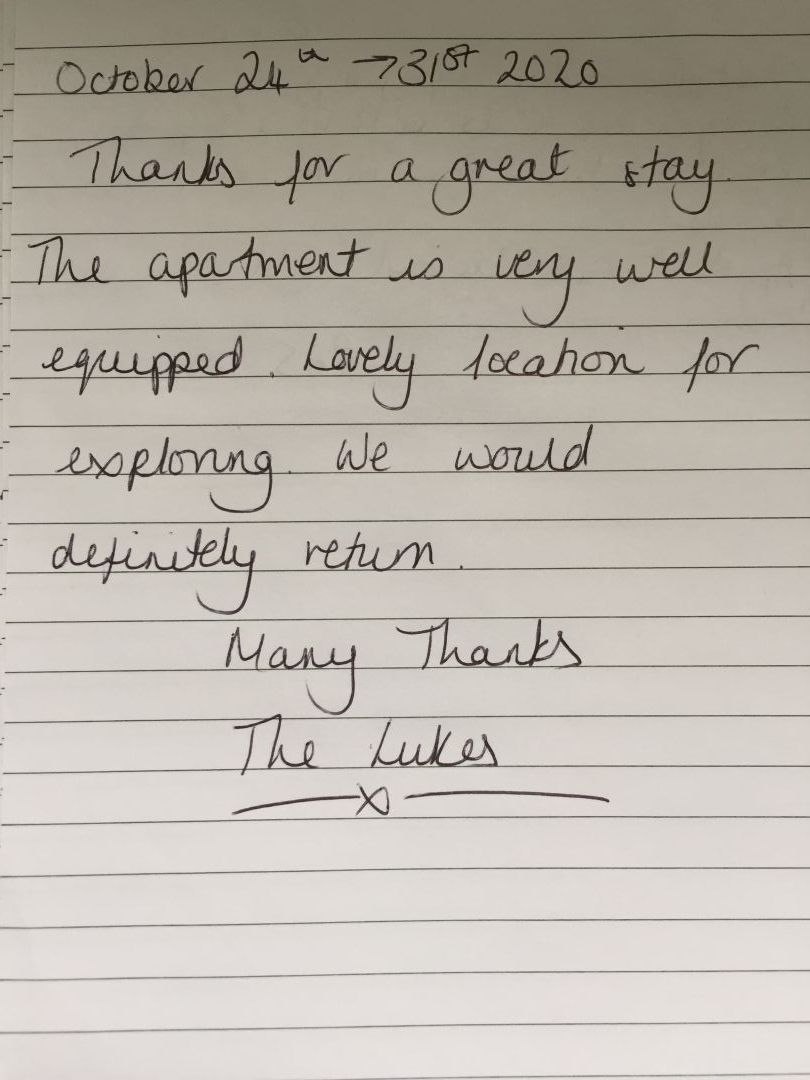 October 24th → 31st 2020
Thanks for a great stay.
The apatment is very well
equipped. Lovely location for
exploring. We would
definitely return.
Many Thanks
The Lukes
x